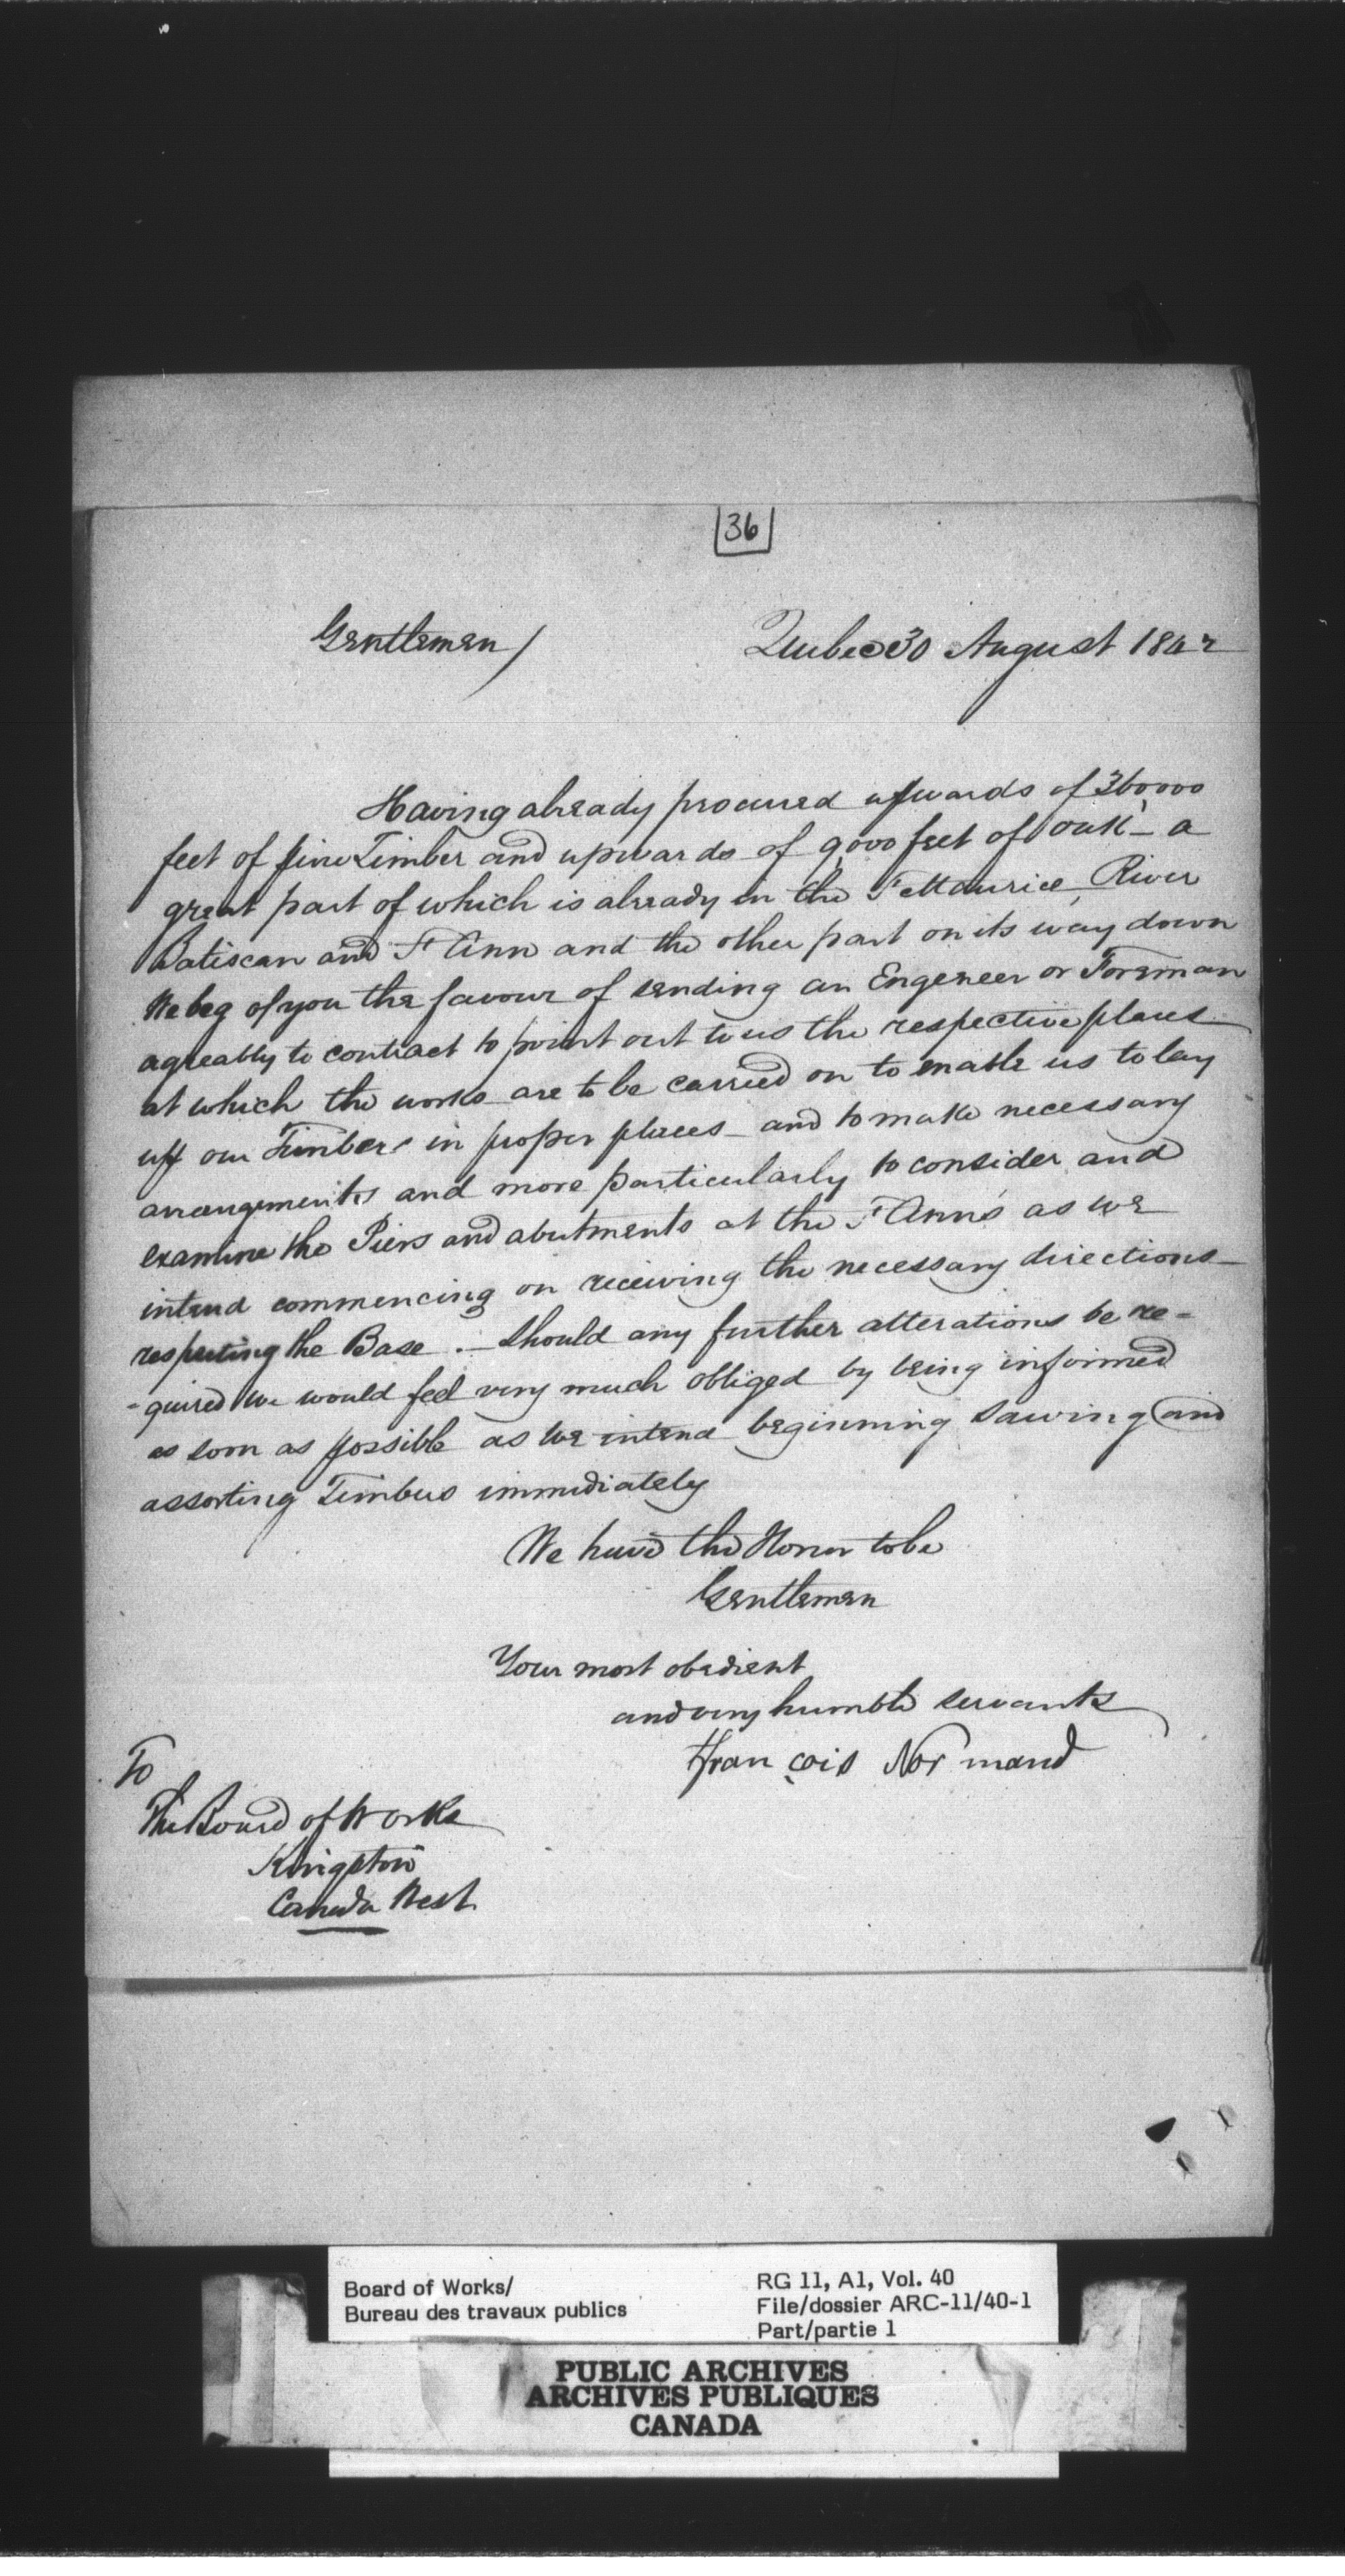 36
Gentlemen / Quebec 30 August 1842
Having already procured upwards of 360000
feet of pine Timber and upwards of 9,000 feet of oak - a
great part of which is already in the St Maurice, River
Batiscan and St Ann and the other part on its way down
We beg of you the favour of sending an Engeneer or Foreman
agreably to contract to point out to us the respective places
at which the works are to be carried on to enable us to lay
off our Timbers in proper places - and to make necessary
arrangements and more particularly to consider and
examine the Piers and abutments at the St Ann's as we
intend commencing on receiving the necessary directions
respecting the Base . - Should any further alterations be re-
-quired we would feel very much obliged by being informed
as soon as possible as we intend beginning sawing and
assorting Timbers immediately
We have the Honor to be
Gentlemen
Your most obedient
and very humble servants
François Normand
To
The Board of Works
Kingston
Canada West
Board of Works/ RG 11, A1, Vol. 40
Bureau des travaux publics File/dossier ARC-11/40-1
Part/partie 1
PUBLIC ARCHIVES
ARCHIVES PUBLIQUES
CANADA